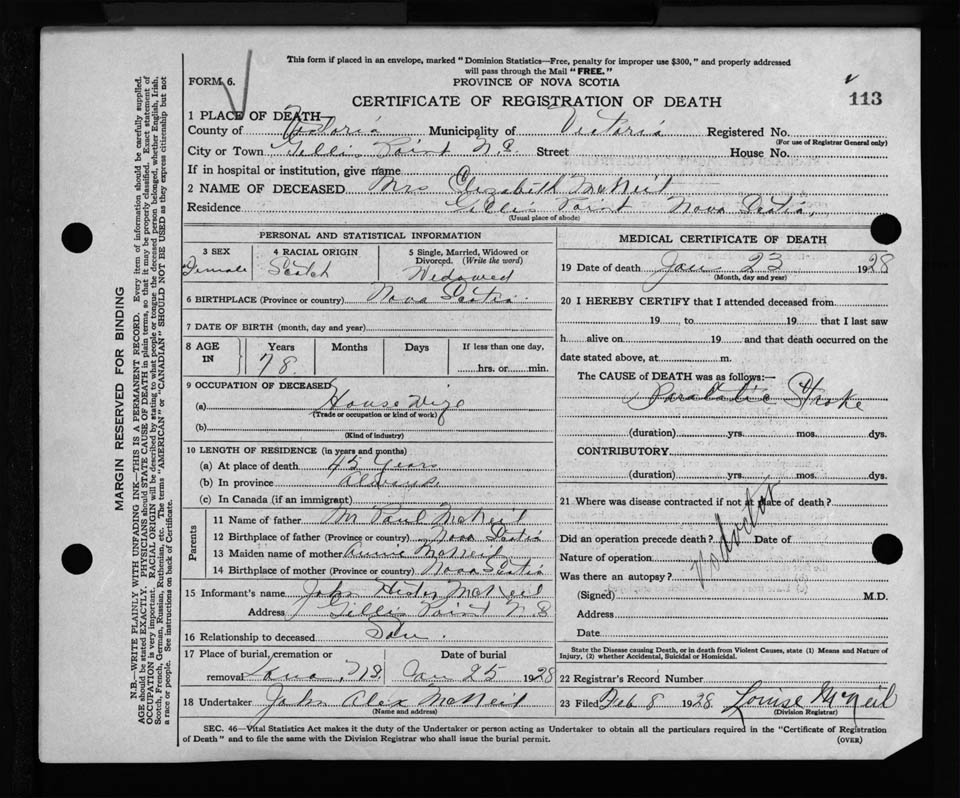 This form if placed in an envelope, marked "Dominion Statistics—Free, penalty for improper use $300," and properly addressed
will pass through the Mail "FREE."
FORM 6.
PROVINCE OF NOVA SCOTIA
CERTIFICATE OF REGISTRATION OF DEATH
113
1 PLACE OF DEATH
County of Victoria Municipality of Victoria Registered No.
(For use of Registrar General only)
City or Town Gillis Point N.S. Street House No.
If in hospital or institution, give name
2 NAME OF DECEASED Mrs Elizabeth McNeil
Residence Gillis Point Nova Scotia,
(Usual place of abode)
PERSONAL AND STATISTICAL INFORMATION
3 SEX
Female
4 RACIAL ORIGIN
Scotch
5 Single, Married, Widowed or
Divorced. (Write the word)
Widowed
6 BIRTHPLACE (Province or country) Nova Scotia
7 DATE OF BIRTH (month, day and year)
8 AGE IN
Years Months Days If less than one day,
78. hrs. or min.
9 OCCUPATION OF DECEASED
(a) House Wife
(Trade or occupation or kind of work)
(b)
(Kind of industry)
10 LENGTH OF RESIDENCE (in years and months)
(a) At place of death 45 Years
(b) In province Always
(c) In Canada (if an immigrant)
Parents
11 Name of father Mr Paul McNeil
12 Birthplace of father (Province or country) Nova Scotia
13 Maiden name of mother Annie McNeil
14 Birthplace of mother (Province or country) Nova Scotia
15 Informant's name John Hector McNeil
Address Gillis Point N S
16 Relationship to deceased Son.
17 Place of burial, cremation or
removal Iona, N.S.
Date of burial
Jan 25 1928
18 Undertaker John Alex McNeil
(Name and address)
MEDICAL CERTIFICATE OF DEATH
19 Date of death Jan 23 1928
(Month, day and year)
20 I HEREBY CERTIFY that I attended deceased from
19 , to 19 that I last saw
h alive on 19 and that death occurred on the
date stated above, at m.
The CAUSE of DEATH was as follows:—
Paralatic Stroke
(duration) yrs. mos. dys.
CONTRIBUTORY.
(duration) yrs. mos. dys.
21 Where was disease contracted if not at place of death?
Did an operation precede death? Date of
Nature of operation
Was there an autopsy?
No doctor
(Signed) M.D.
Address
Date
State the Disease causing Death, or in death from Violent Causes, state (1) Means and Nature of
Injury, (2) whether Accidental, Suicidal or Homicidal.
22 Registrar's Record Number
23 Filed Feb 8 1928. Louise McNeil
(Division Registrar)
SEC. 46—Vital Statistics Act makes it the duty of the Undertaker or person acting as Undertaker to obtain all the particulars required in the "Certificate of Registration
of Death" and to file the same with the Division Registrar who shall issue the burial permit.
(OVER)
MARGIN RESERVED FOR BINDING
N.B.—WRITE PLAINLY WITH UNFADING INK—THIS IS A PERMANENT RECORD. Every item of information should be carefully supplied.
AGE should be stated EXACTLY. PHYSICIANS should STATE CAUSE OF DEATH in plain terms, so that it may be properly classified. Exact statement of
OCCUPATION is very important. RACIAL ORIGIN will be described by stating to what people or tongue the deceased person belonged, whether English, Irish,
Scotch, French, German, Russian, Ruthenian, etc. The terms "AMERICAN" or "CANADIAN" SHOULD NOT BE USED as they express citizenship but not
a race or people. See instructions on back of Certificate.